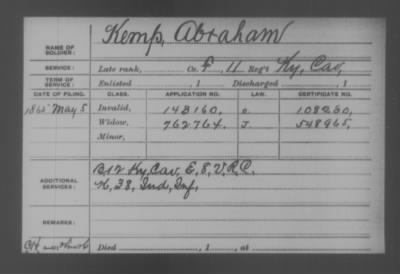 Kemp, Abraham
NAME OF SOLDIER:
SERVICE: Late rank, Co. F, 11 Reg't Ky. Cav,
TERM OF SERVICE: Enlisted , 1 Discharged , 1
DATE OF FILING. CLASS. APPLICATION NO. LAW. CERTIFICATE NO.
May 5 Invalid, 148160, 108250,
Widow, 762764, J. 548965,
Minor,
ADDITIONAL SERVICES: B 12 Ky, Cav, E, 8, V.R.C.
K, 38, Ind, Inf,
REMARKS:
Died , 1 , at